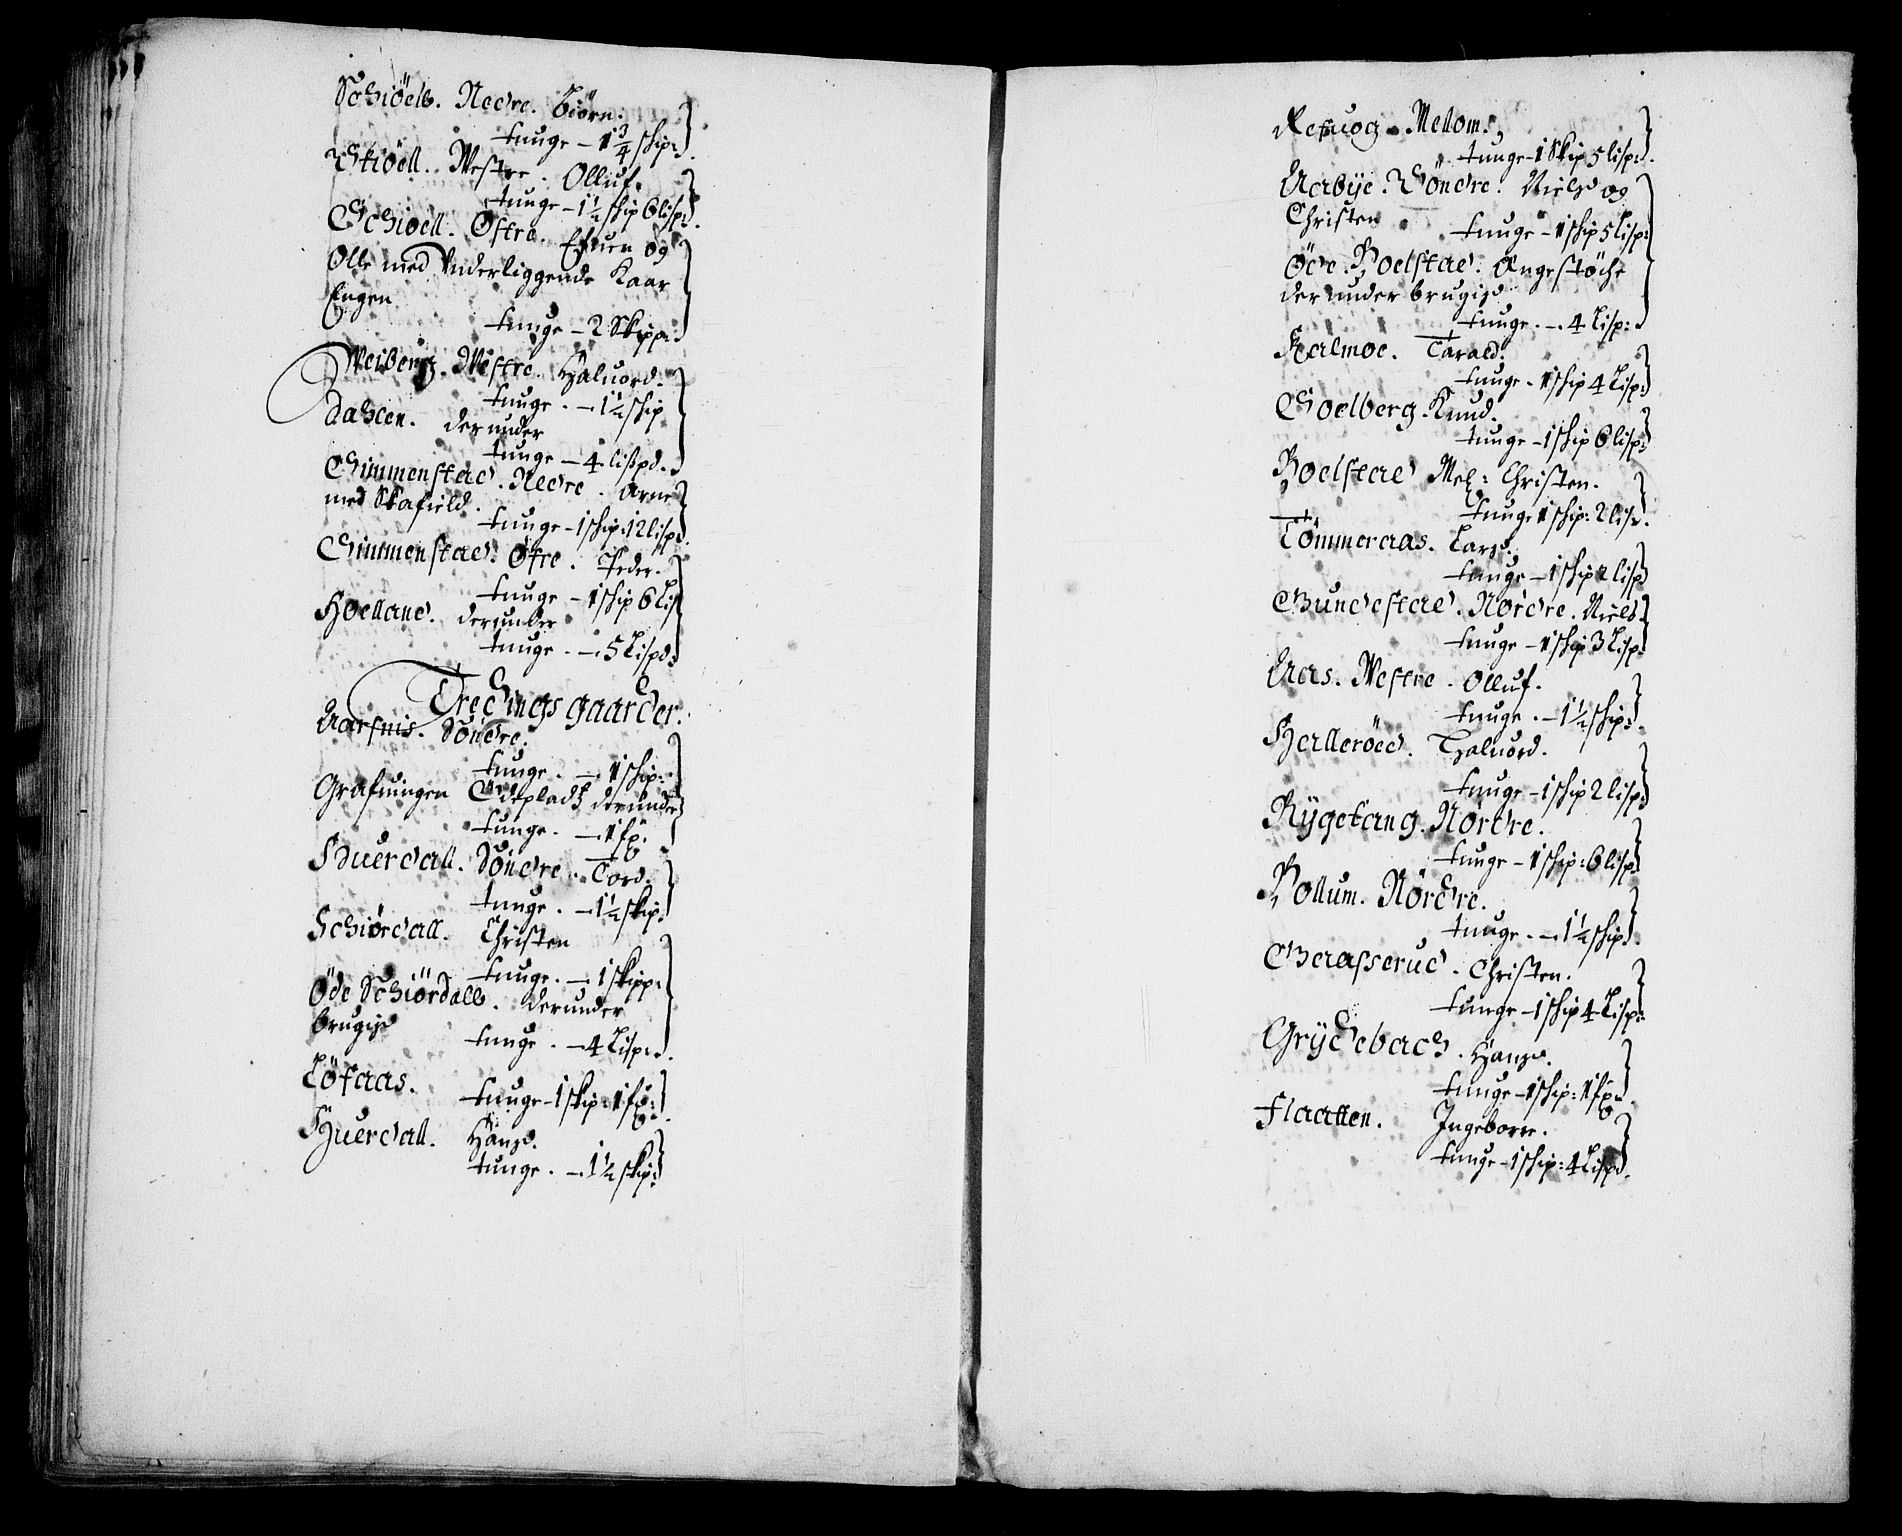 Schiöell. Nedre. Biörn.
tunge - 1 3/4 schip:
Skiöell. Westre. Olluf.
tunge - 1 1/2 schip 6 lisp:
Schiöell. Östre. Efuen og
Olle med Underliggende Kaar
Engen
tunge - 2 Skipp:
Weiberg. Westre. Haluord.
tunge. - 1 1/2 schip
Dahlen. derunder
tunge - 4 lispd.
Simmenstad. Nedre. Arne
med Skafield.
tunge - 1 schip: 12 lisp:
Simmenstad. Öfre. Peder.
tunge - 1 schip 6 Lis
Hoelland. derunder
tunge. - 5 Lispd:
Tredings gaarder.
Aarsnis. Söndre.
tunge. - 1 schip:
Grafningen Ödepladtz derunder
tunge. - 1 fz:
Suerdall. Söndre. Tord.
tunge. - 1 1/2 skip:
Schiördall. Christen
tunge. - 1 skipp:
Öde Schiördall. derunder
brugis
tunge. - 4 Lisp:
Löfaas.
tunge - 1 skip: 1 fz:
Huerdall. Hans.
tunge. - 1 1/2 skip:
Refuog. Mellom.
tunge - 1 Skip 5 lisp:
Aabye. Söndre. Niels og
Christen
tunge - 1 schip 5 Lisp:
Öde. Boelstad. Engestöche
der under brugis
tunge. - 4 Lisp:
Kalmoe. Tarald.
tunge - 1 schip 4 Lisp:
Soelberg. Knud.
tunge - 1 schip 6 lisp:
Boelstad Mel: Christen.
tunge 1 schip: 2 lis
Tömmeraas. Lars.
tunge - 1 schip 2 lisp
Gundestad. Nordre. Niels.
tunge - 1 schip 3 Lisp:
Aas. Westre. Olluf.
tunge. - 1 1/2 schip:
Hælleröed. Haluord.
tunge - 1 schip 2 lisp:
Rygetang. Nordre.
tunge - 1 schip: 6 lisp:
Bollum. Nördre.
tunge. - 1 1/2 schip
Gerasserud. Christen.
tunge - 1 schip 4 Lisp:
Grydebach. Hans.
tunge - 1 schip: 1 fz:
Flaatten. Ingeborre.
tunge - 1 schip: 4 Lispd.